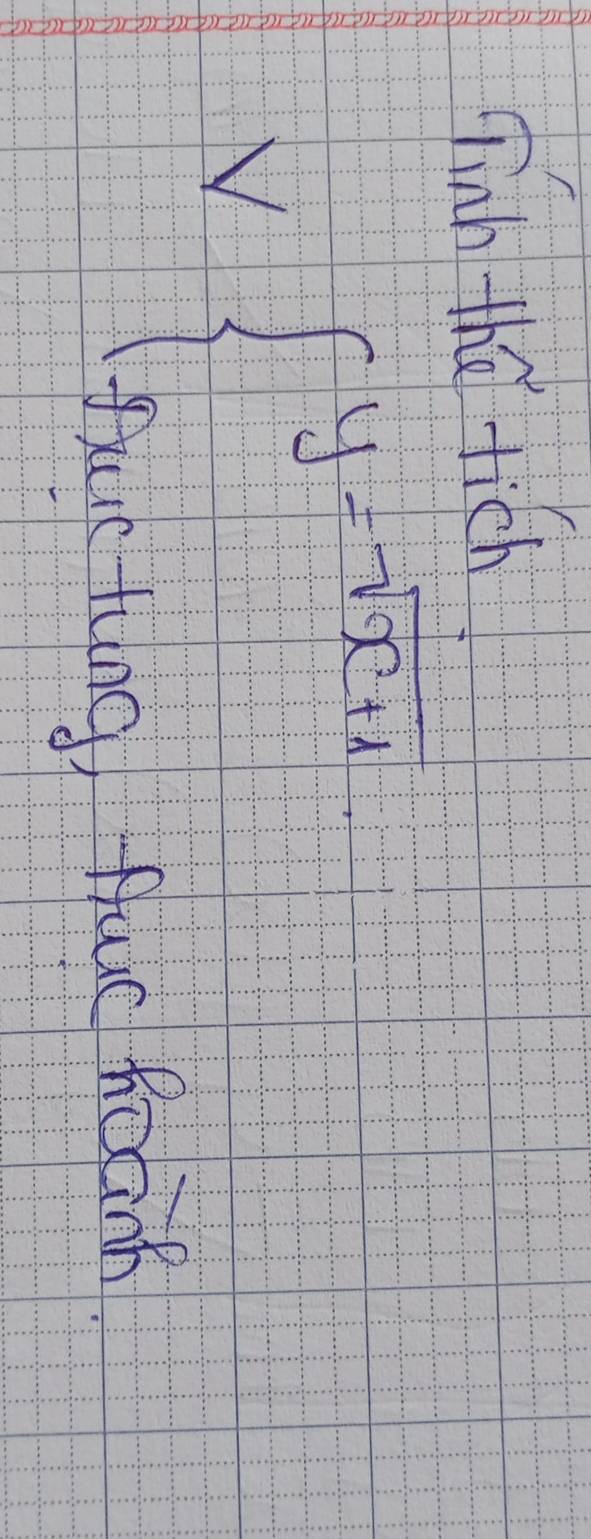 Tính thể tích
V { y = √x+1
trục tung, trục hoành